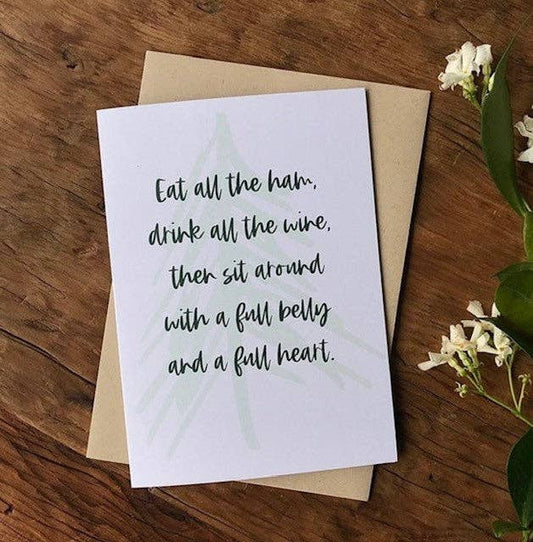 Eat all the ham,
drink all the wine,
then sit around
with a full belly
and a full heart.